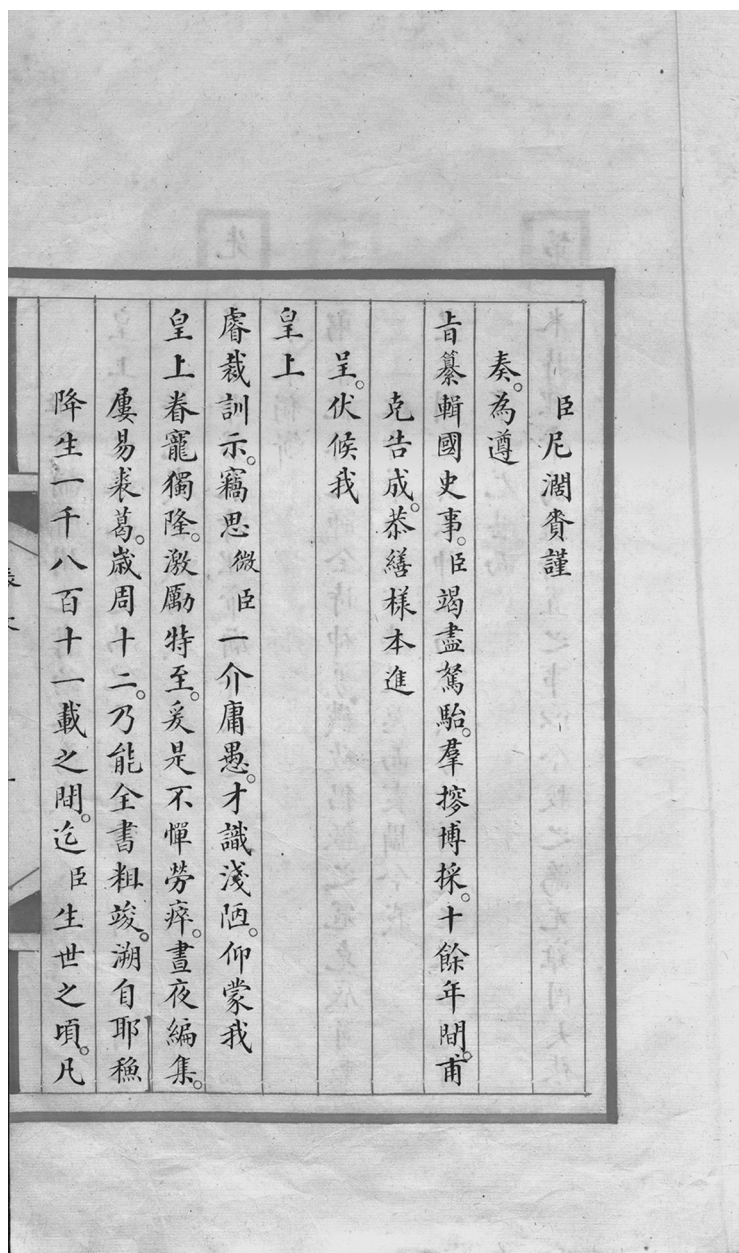 臣尼濶賚謹
奏。為遵
旨纂輯國史事。臣竭盡駑駘。羣搜博採。十餘年間。甫
克告成。恭繕樣本進
呈。伏候我
皇上
睿裁訓示。竊思微臣一介庸愚。才識淺陋。仰蒙我
皇上眷寵獨隆。激勵特至。爰是不憚勞瘁。晝夜編集。
屢易裘葛。歲周十二。乃能全書粗竣。溯自耶穌
降生一千八百十一載之間。迄臣生世之頃。凡